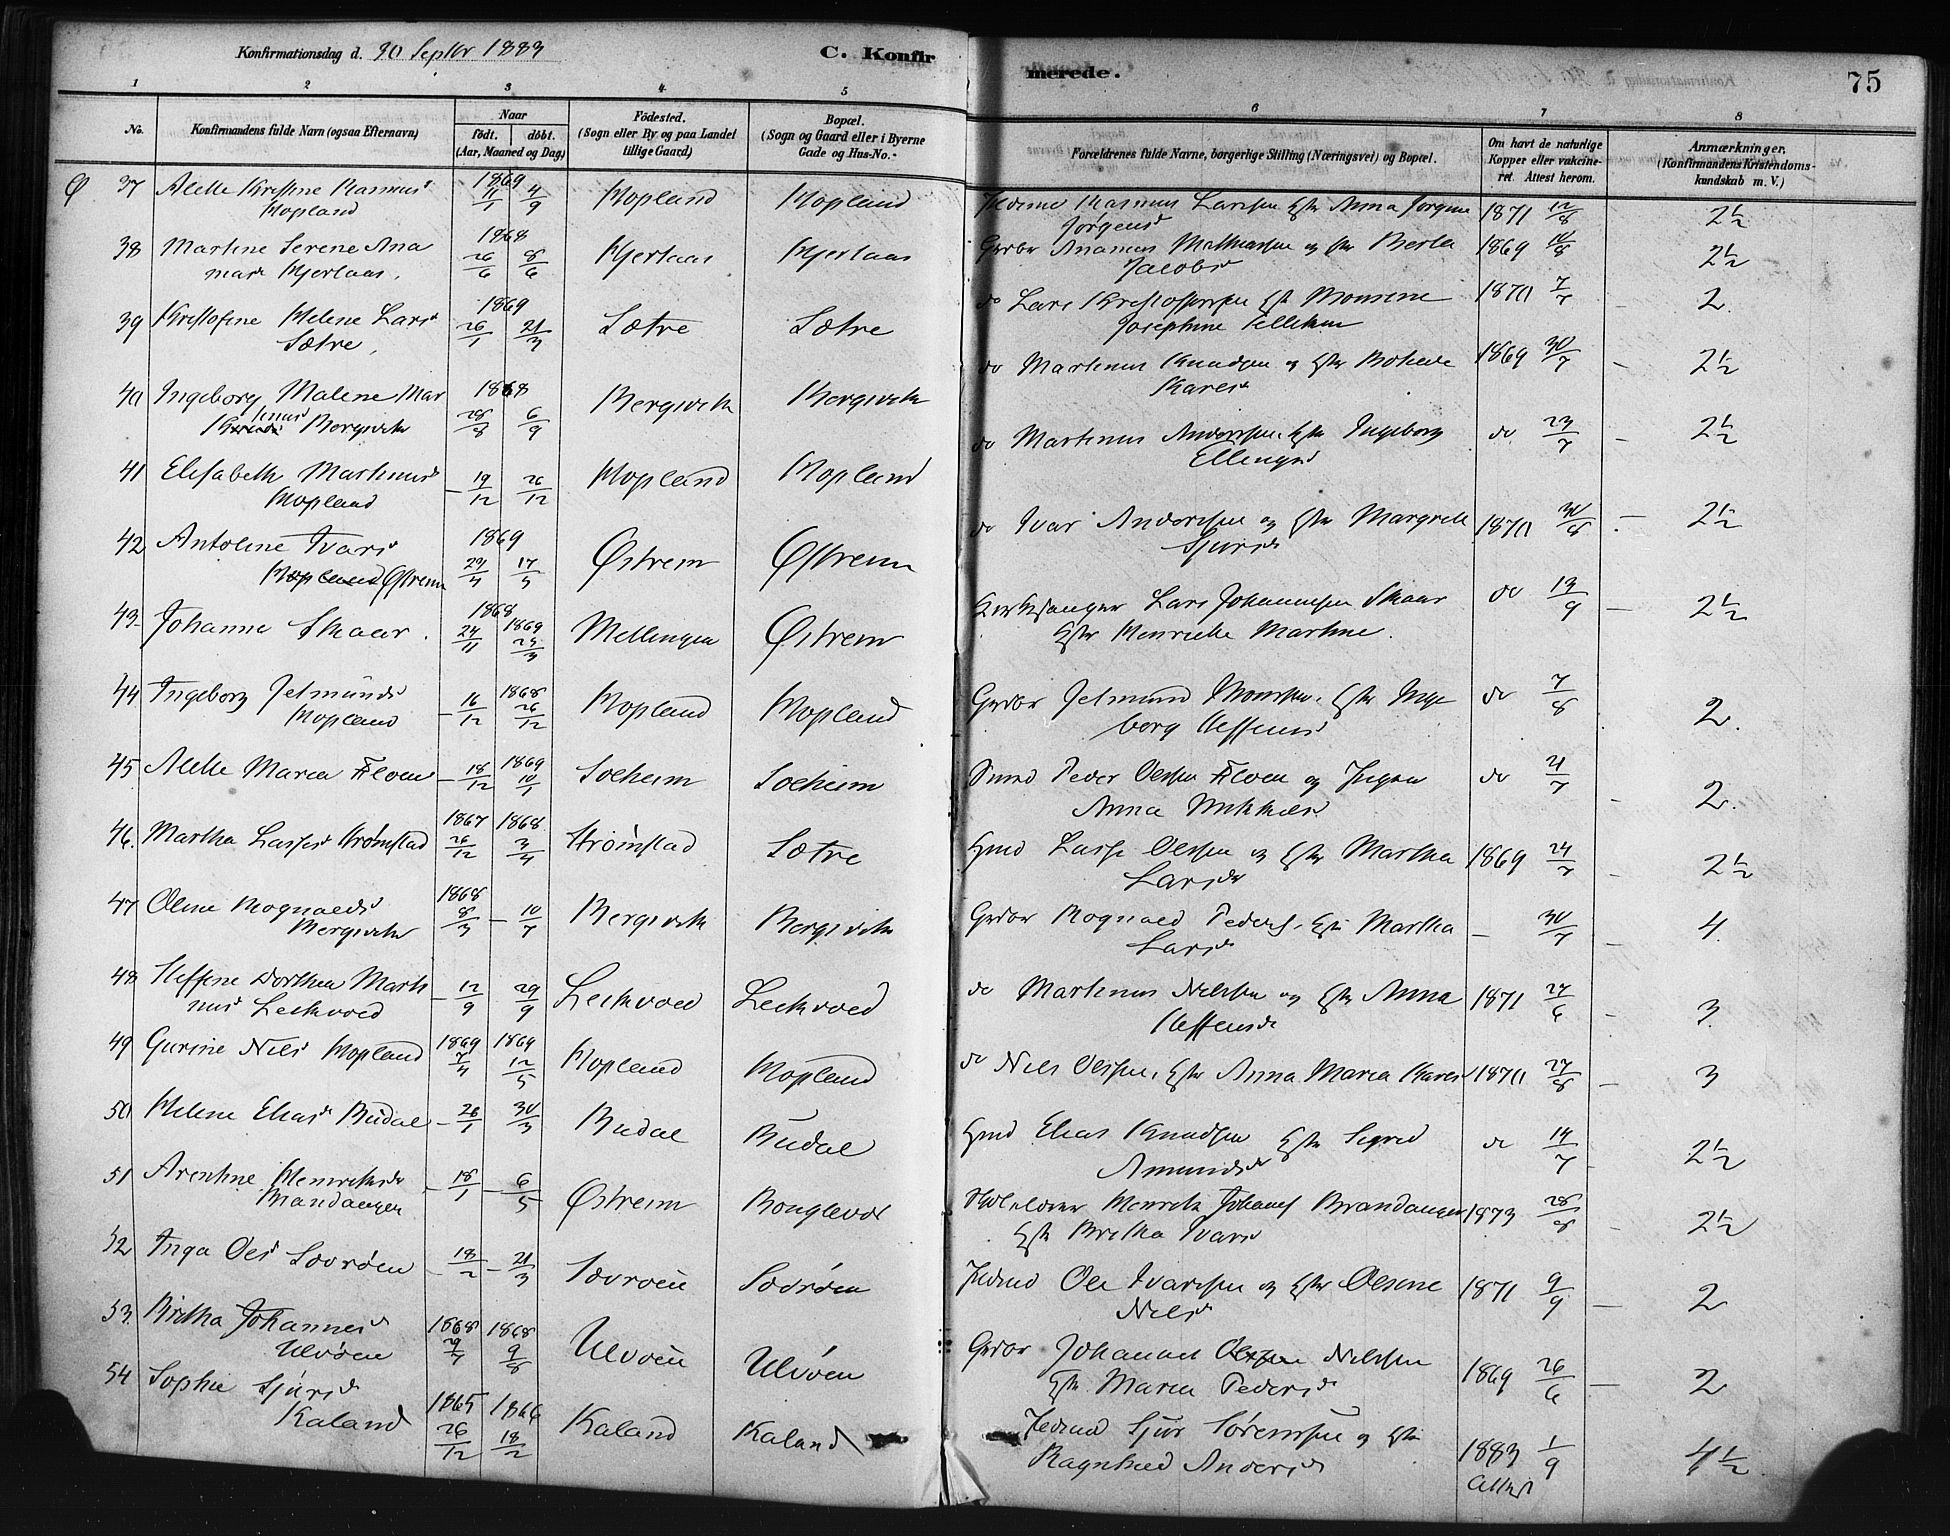 Konfirmationsdag d. 30 Septbr 1883
C. Konfirmerede.
75
1 2 3 4 5 6 7 8
No.
Konfirmandens fulde Navn (ogsaa Efternavn)
Naar
födt. döbt.
(Aar, Maaned og Dag)
Födested.
(Sogn eller By og paa Landet tillige Gaard)
Bopæl.
(Sogn og Gaard eller i Byerne Gade og Hus-No.
Forældrenes fulde Navne, borgerlige Stilling (Næringsvei) og Bopæl.
Om havt de naturlige Kopper eller vakcineret. Attest herom.
Anmærkninger.
(Konfirmandens Kristendomskundskab m. V.)
Ø 37 Kristine Rasmusd Hopland 1869 11/1 4/9 Hopland Hopland Rasmus Larssen Hstr Anna Jørgine Jørgensd 1871 12/8 2½
38 Martine Serene Ananiasd Hjertaas 1868 26/6 8/6 Hjertaas Hjertaas Grbr Ananias Mathiassen og Hstr Berta Jacobsd 1869 2½
39 Kristofine Helene Larsd Sætre 1869 26/1 21/3 Sætre Sætre do Lars Kristoffersen Hst Monsine Josephine 1870 7/7 2
40 Ingeborg Malene Martinusd Bergsvik 1868 28/8 6/9 Bergsvik Bergsvik do Martinus Knudsen og Hstr 1869 30/7 2½
41 Elisabeth Martinusd Hopland 19/12 26/12 Hopland Hopland do Martinus Anderssen Hstr Ingeborg Ellingsd do 23/7 2½
42 Antoline Ivarsd Hopland Østrem 1869 17/5 Østrem Østrem do Ivar Anderssen og Hstr Margrete Sjursd 1870 30/8 2½
43 Johanna Skaar 1868 24/11 1869 Mellingen Østrem Kirkesanger Lars Johannessen Skaar Hstr Henrikke Martine do 13/9 2½
44 Ingeborg Jetmundsd Hopland 16/12 1868 26/12 Hopland Hopland Grbr Jetmund Monssen Hstr Ingeborg Steffensd do 7/8 2
45 Maria Floen 18/12 1869 10/1 Solheim Solheim Peder Olssen Floen og Anna Mikkelsd do 21/7 2
46 Martha Lassesd Strømstad 1867 26/12 1868 3/4 Strømstad Sætre Hmd Lasse Olssen og Hstr Martha Larsdr 1869 24/7 2½
47 Oline Rognaldsd Bergsvik 1868 8/3 10/7 Bergsvik Bergsvik Grbr Rognald Peders. Hstr Martha Larsd 30/7 4
48 Steffine Dorthea Martinusd Leikvold 12/9 29/9 Leikvold Leikvold do Martinus Nilssen og Hstr Anna Steffensd 1871 27/6 3
49 Gurine Nilsd Hopland 1869 7/4 1869 12/5 Hopland Hopland do Nils Olssen, Hstr Anna Maria 1870 27/8 3
50 Helene Eliasd Budal 26/1 30/3 Budal Budal Hmd Elias Knudssen Hstr Sigrid Amundsdr do 14/7 2½
51 Arentine Henriksd Brandangen 18/1 6/5 Østrem Henrik Johans Brandangen Hstr Britha Ivarsd 1873 28/8 2½
52 Inga Olsd Lavrøen 18/2 21/3 Ole Ivarssen og Hstr Olsine Nilsd 1871 9/9 2
53 Britha Johannesd Ulvøen 1868 29/7 1868 9/8 Ulvøen Ulvøen Grbr Johannes Olssen Nilssen Hstr Maria Pedersd 1869 26/6 2
54 Sophie Sjursd Kaland 1865 26/12 1866 18/2 Kaland Kaland Sjur Sørenssen og Hstr Ragnhild Andersd 1883 1/9 Attest 4½